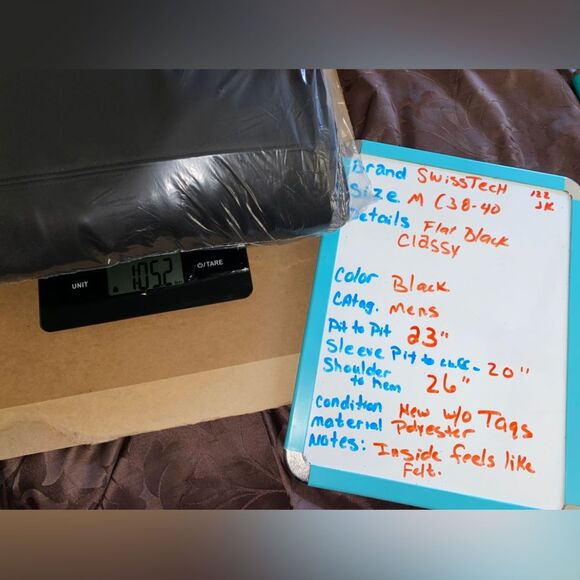 UNIT
1052
⏻/TARE
Brand SwissTecH
122
JK
Size M (38-40
Details Flat Black
Classy
Color Black
CAtag. Mens
Pit to Pit 23"
Sleeve Pit to cuff - 20"
Shoulder to Hem 26"
Condition New w/o Tags
material Polyester
Notes: Inside feels like
Felt.